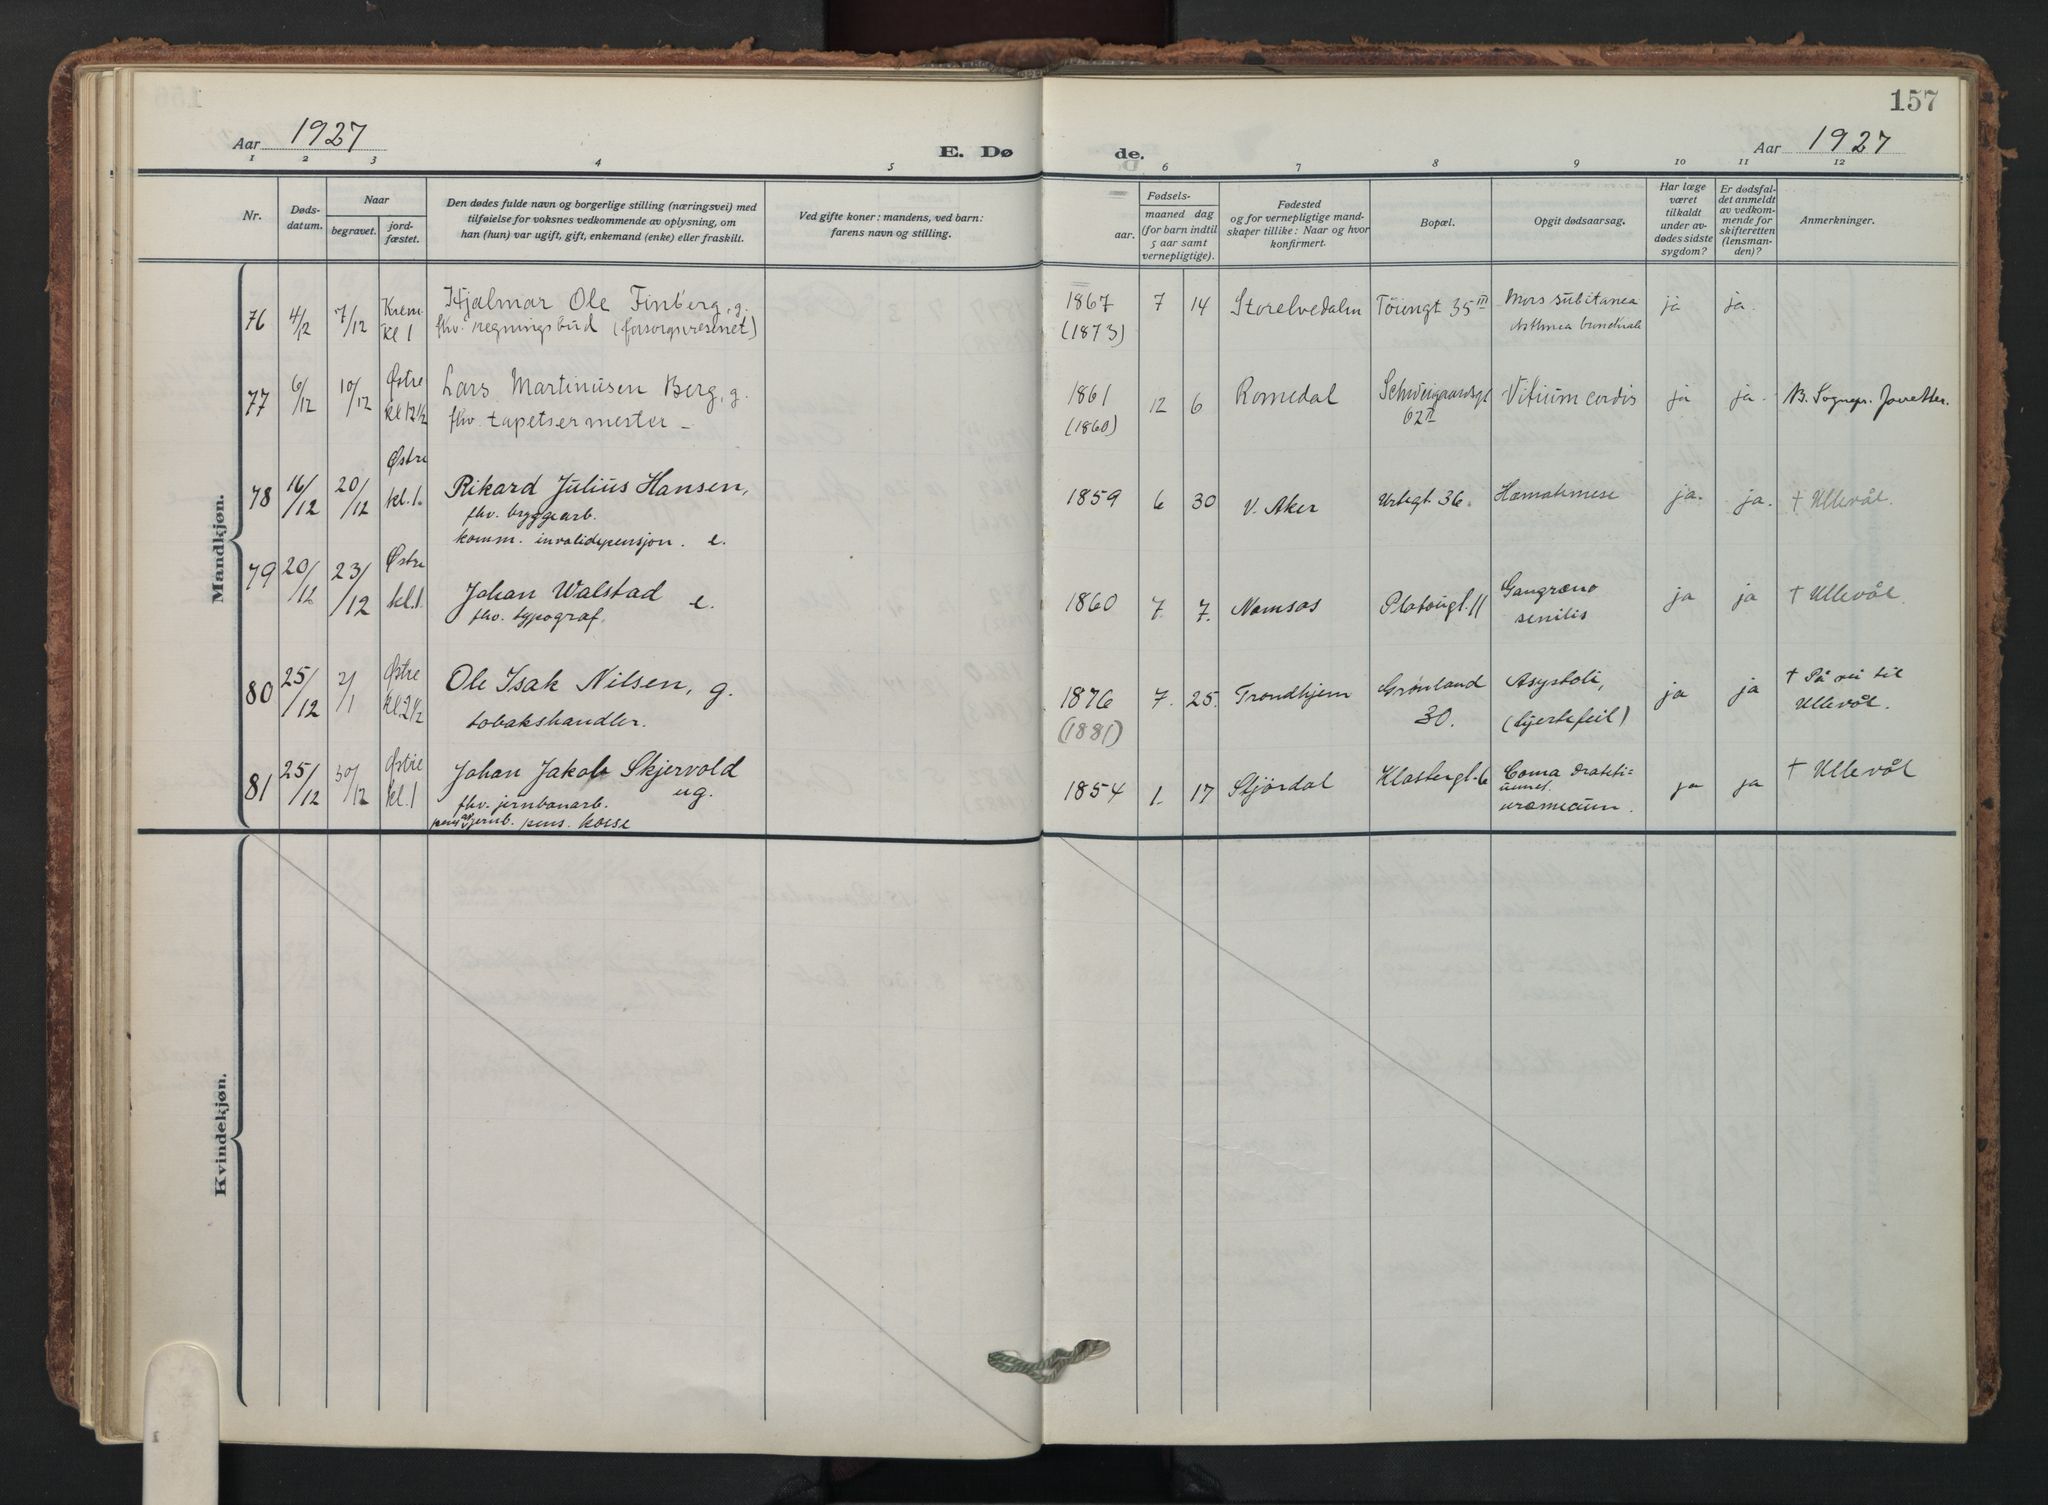 157
Aar 1927
E. Døde.
Aar 1927
1 2 3 4 5 6 7 8 9 10 11 12
Nr.
Døds-
datum.
Naar
begravet.
jord-
fæstet.
Den dødes fulde navn og borgerlige stilling (næringsvei) med
tilføielse for voksnes vedkommende av oplysning, om
han (hun) var ugift, gift, enkemand (enke) eller fraskilt.
Ved gifte koner: mandens, ved barn:
farens navn og stilling.
Fødsels-
aar.
maaned dag
(for barn indtil
5 aar samt
vernepligtige).
Fødested
og for vernepligtige mand-
skaper tillike: Naar og hvor
konfirmert.
Bopæl.
Opgit dødsaarsag.
Har læge
været
tilkaldt
under av-
dødes sidste
sygdom?
Er dødsfal-
det anmeldt
av vedkom-
mende for
skifteretten
(lensman-
den)?
Anmerkninger.
Mandkjøn.
76 4/12 7/12 Krem. kl 1
Hjalmar Ole Finberg, g.
fhv. regningsbud (forsorgsvesenet)
1867 7 14 Storelvedalen Töiengt 35 III Mors subitanea ja ja.
(1873) Asthma
77 6/12 10/12 Østre kl 12½
Lars Martinusen Berg, g.
fhv. tapetsermester –
1861 12 6 Romedal Schweigaardsgt 62 II Vitium cordis ja ja. NB. Sognepr.
(1860)
78 16/12 20/12 Østre kl. 1.
Rikard Julius Hansen,
fhv. bryggearb.
komm. invalidepensjon. e.
1859 6 30 V. Aker Urtegt 36. Hæmatemese ja. ja. + Ullevål.
79 20/12 23/12 Østre kl. 1.
Johan Walstad e.
fhv. typograf.
1860 7. 7. Namsos Platougt. 11 Gangræna senilis ja ja + Ullevål.
80 25/12 2/1 Østre kl. 2½
Ole Isak Nilsen, g.
tobakshandler.
1876 7. 25. Trondhjem Grønland 30. Asystoli, (hjertefeil) ja ja + På vei til Ullevål.
(1881)
81 25/12 30/12 Østre kl. 1
Johan Jakob Skjervold
fhv. jernbanarb. ug.
pens av jernb. pens. kasse
1854 1. 17 Stjørdal Klostergt. 6 Coma uræmicum. ja ja + Ullevål
Kvindekjøn.